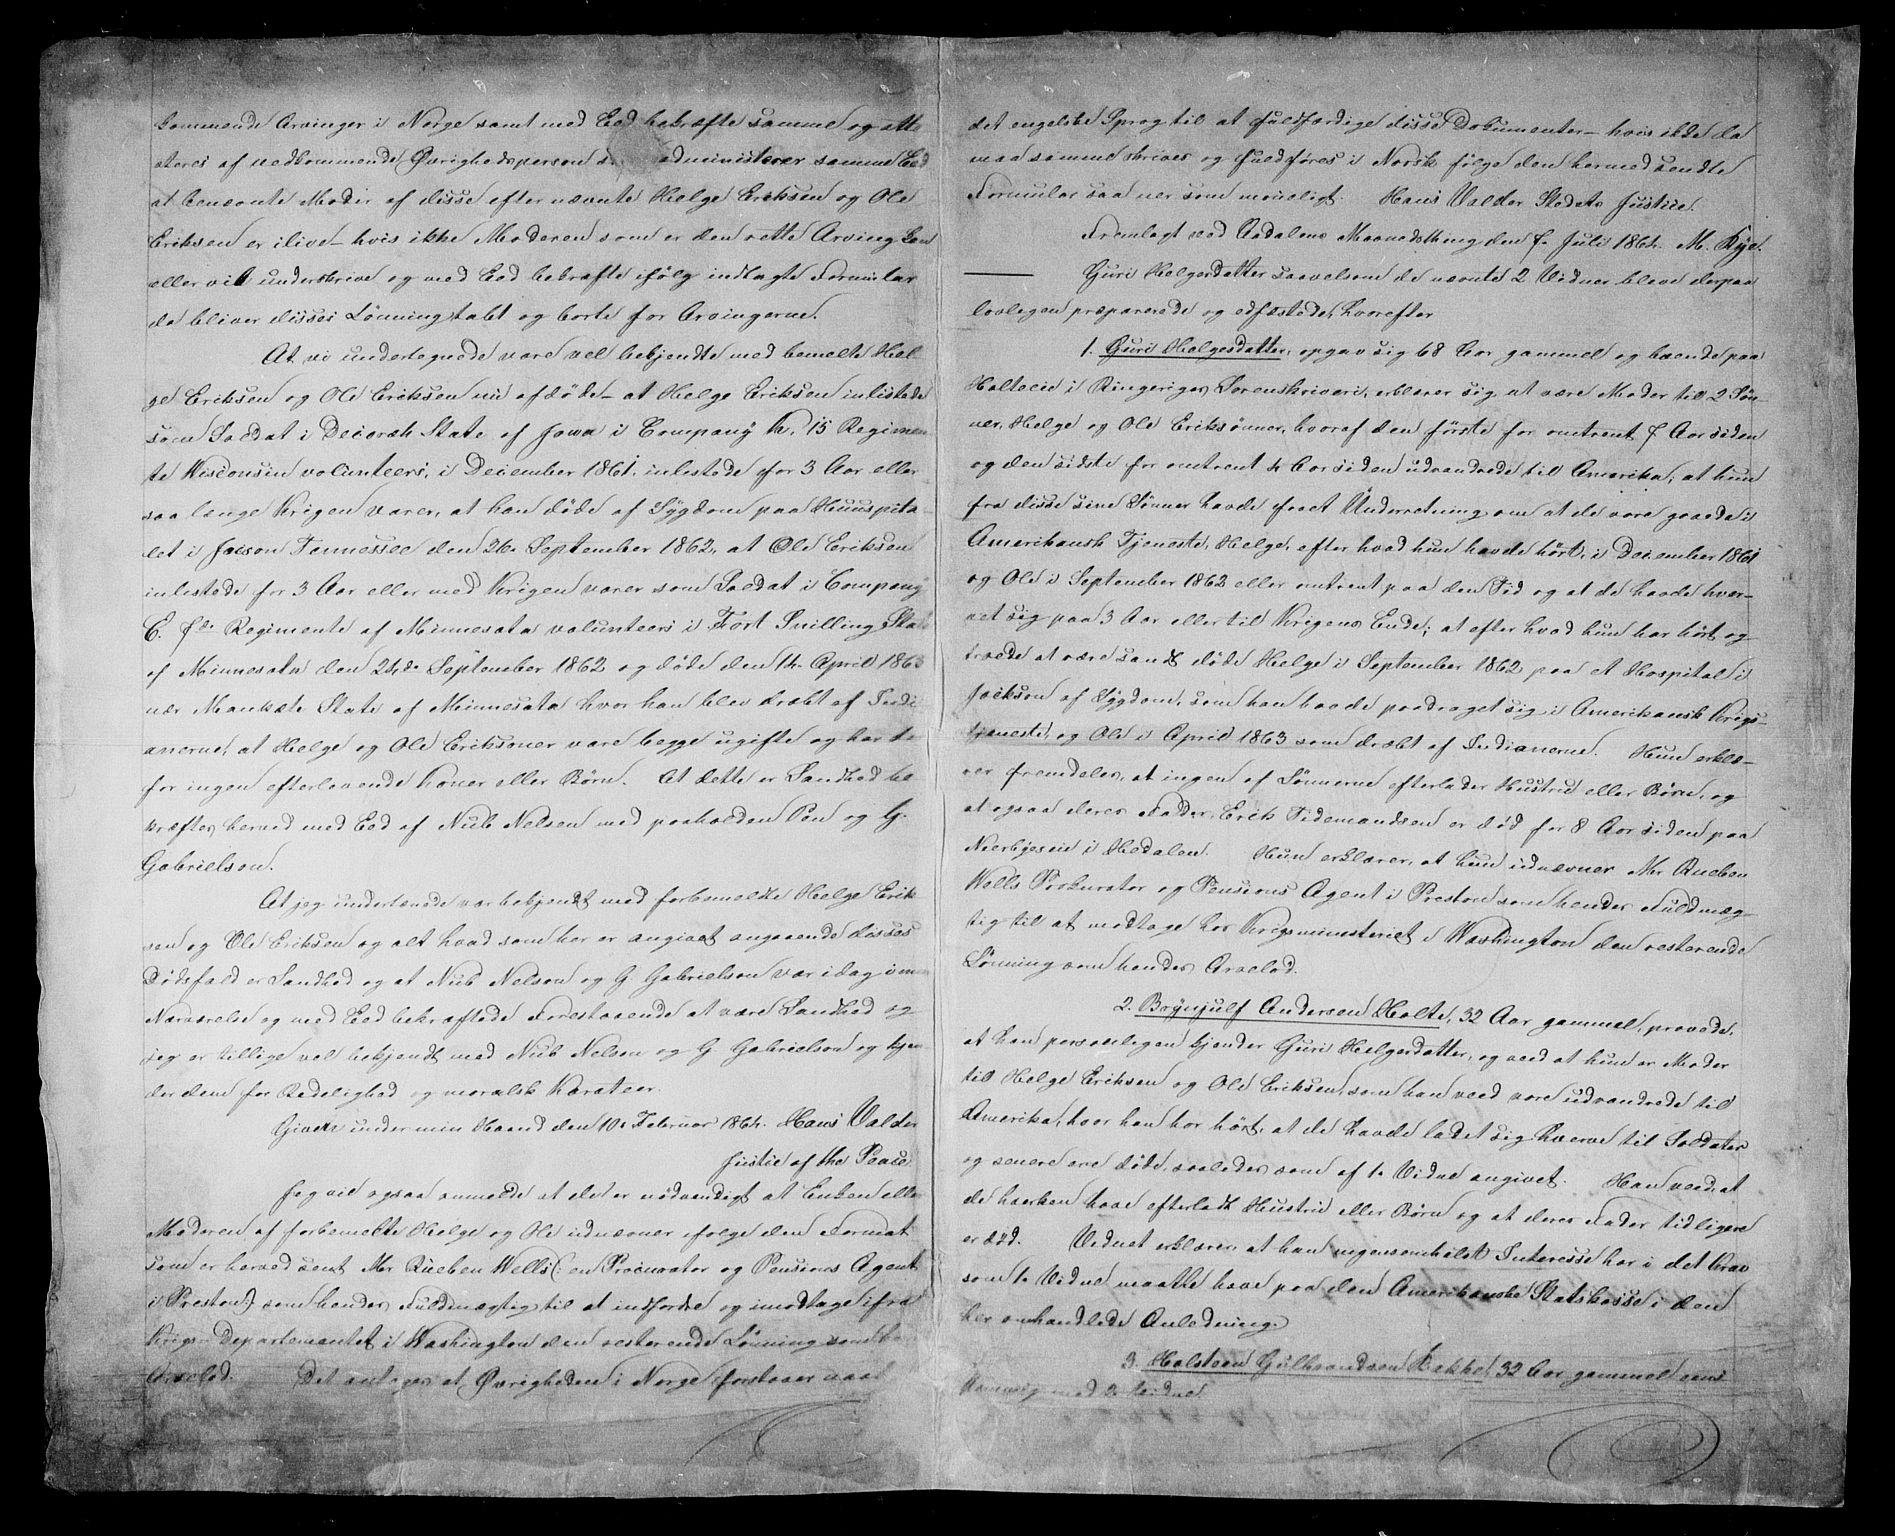 kommende Arvinger i Norge samt med Eed bekræfte samme og atte
steres af vedkommende Øvrighedsperson administerer samme Eed
at benævnte Moder af disse efter nævnte Helge Eriksen og Ole
Eriksen er ilive – hvis ikke Moderen som er den rette Arving kan
eller vil underskrive og med Eed bekræfte ifølg indlagte Formular
da bliver disses Lønning tabt og borte for Arvingerne.
At vi undertegnede vare vel bekjendte med bemelte Hel
ge Eriksen og Ole Eriksen nu afdøde – at Helge Eriksen inlistede
som Soldat i Decorah State of Jowa i Company K. 15 Regimen
te Wisconsin volunteers, i December 1861, inlistede for 3 Aar eller
saa længe Krigen varer, at han døde af Sygdom paa Huuspita
let i Jacson Tennessee den 26. September 1862, at Ole Eriksen
inlistede for 3 Aar eller med Krigen varer som Soldat i Company
E. 7de Regimente af Minnesata volunteers i Fort Snilling State
of Minnesata den 24de September 1862 og døde den 14. April 1863
nær Mankate State af Minnesata hvor han blev dræbt af Indi
anerne, at Helge og Ole Eriksøner vare begge ugifte og har der
for ingen efterlevende Koner eller Børn. At dette er Sandhed be
kræftes herved med Eed af Nub Nelsen med paaholden Pen og G.
Gabrielson.
At jeg undertænede var bekjendt med forbemeldte Helge Erik
sen og Ole Eriksen og alt hvad som her er angivet angaaende disses
Dødsfald er Sandhed og at Nub Nelson og G. Gabrielson var idag i min
Nærværelse og med Eed bekræftede Forestaaende at være Sandhed og
jeg er tillige vel bekjendt med Nub Nelson og G. Gabrielson og kjen
der dem for Redelighed og moralsk Karateer.
Given under min Haand den 10. Februar 1864. Hans Valder
Justie of the Pease.
Jeg vil ogsaa anmelde at det er nødvendigt at Enken eller
Moderen af forbemelte Helge og Ole udnævner ifølge den Format
som er herved sent Mr Rueben Wells (: en Procurator og Pensions Agent
i Preston:) som hendes Fuldmægtig til at indfordre og imodtage ifra
Krigs-Departementet i Washington den resterende Lønning som
Arvelod. Det antages at Øvrigheden i Norge forstaaer
det engelske Sprog til at fuldfærdige disse Dokumenter – hvis ikke da
maa samme skrives og fuldføres i Norsk følge den hermed sendte
Formular saa nær som mueligt. Hans Valder Stedets Justice.
Fremlagt ved Aadalens Maanedsthing den 7. Juli 1864. M. Kye.
Guri Helgesdatter saavelsom de nævnte 2 Vidner bleve derpaa
lovlegen præparerede og edfæstede, hvorefter
1. Guri Helgesdatter, opgav sig 68 Aar gammel og boende paa
Holteeie i Ringeriges Sorenskriveri, erklærer sig at være Moder til 2 Søn-
ner, Helge og Ole Eriksønner, hvoraf den første for omtrent 7 Aar siden
og den sidste for omtrent 4 Aar siden udvandrede til Amerika; at hun
fra disse sine Sønner havde faaet Underretning om at de vare gaaede i
Amerikansk Tjeneste, Helge, efter hvad hun havde hørt, i December 1861
og Ole i September 1862 eller omtrent paa den Tid og at de havde hver-
vet sig paa 3 Aar eller til Krigens Ende; at efter hvad hun har hørt og
troede at være sandt døde Helge i September 1862 paa et Hospital i
Jackson af Sygdom, som han havde paadraget sig i Amerikansk Krigs-
tjeneste, og Ole i April 1863 som dræbt af Indianerne. Hun erklæ-
rer fremdeles, at ingen af Sønnerne efterlader Hustrue eller Børn, og
at ogsaa deres Fader, Erik Tidemandsen er død for 8 Aar siden paa
Nerbyeeie i Hedalen. Hun erklærer, at hun udnævner Mr Rueben
Wells Prokurator og Pensions Agent i Preston som hendes Fuldmæg-
tig til at modtage hos Krigsministeriet i Washington den resterende
Lønning som hendes Arvelod.
2. Brynjulf Andersen Holte, 32 Aar gammel, provede,
at han personlegen kjender Guri Helgesdatter, og veed at hun er Moder
til Helge Eriksen og Ole Eriksen, som han veed vare udvandrede til
Amerika, hvor han har hørt, at de havde ladet sig hverve til Soldater
og senere ere døde, saaledes som af 1. Vidne angivet. Han veed, at
de hverken have efterladt Hustrue eller Børn og at deres Fader tidligere
er død. Vidnet erklærer at han ingensomhelst Interesse har i det Krav
som 1. Vidne maatte have paa den Amerikanske Statskasse i den
her omhandlede Anledning.
3. Halsteen Gulbrandsen Bakke, 32 Aar gammel eens
stemmig med 2. Vidne.